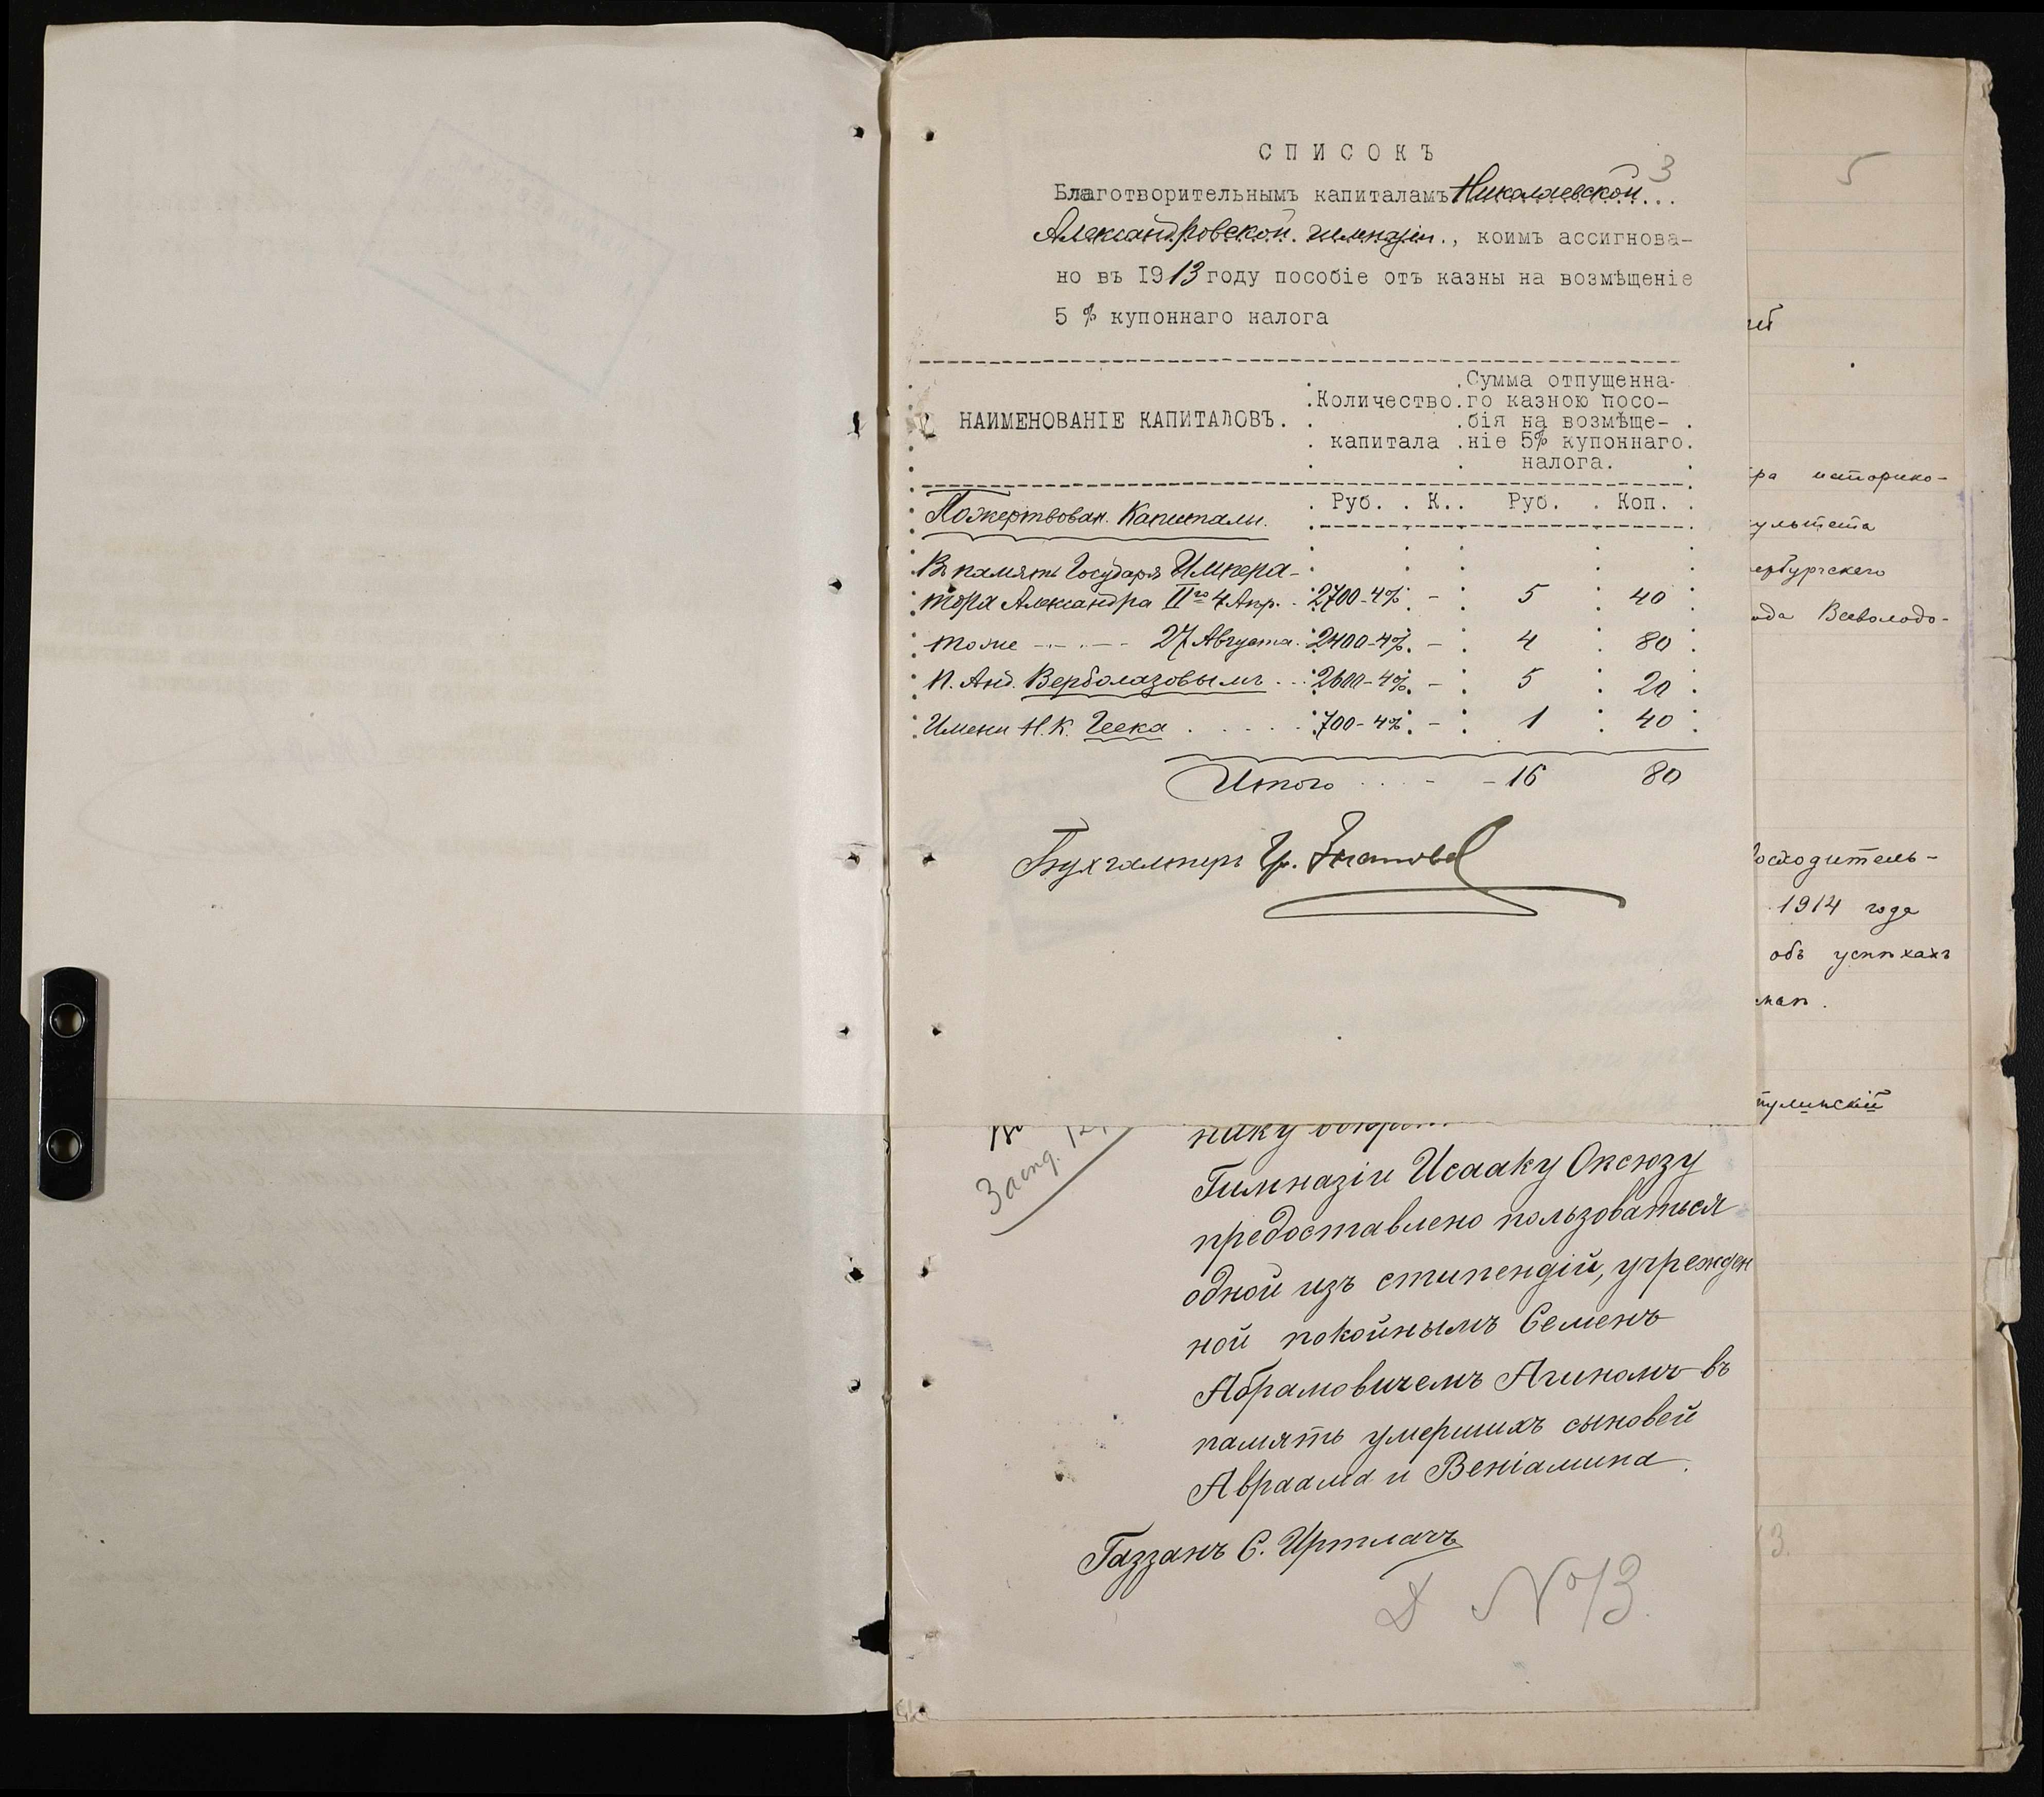 3
СПИСОКЪ
Благотворительнымъ капиталамъ Николаевской
Александровской гимназіи., коимъ ассигнова-
но въ 1913 году пособіе отъ казны на возмѣщеніе
5 % купоннаго налога
НАИМЕНОВАНІЕ КАПИТАЛОВЪ. Количество капитала Сумма отпущенна-
го казною посо-
бія на возмѣще-
ніе 5% купоннаго
налога.
Руб. К. Руб. Коп.
Пожертвован. Капиталы.
Въ память Государя Импера-
тора Александра IIго 4 Апр. 2700-4% - 5 40
тоже - - - - 27 Августа. 2400-4% - 4 80
П. Анд. Верболазовымъ 2600-4% - 5 20
Имени Н. К. Геека 700-4% - 1 40
Итого - - 16 80
Бухгалтеръ Гр.
Гимназіи Исааку Оксюзу
предоставлено пользоваться
одной изъ стипендій, учрежден
ной покойнымъ Семенъ
Абрамовичемъ Агинамъ въ
память умершихъ сыновей
Авраама и Веніамина.
Газзанъ С. Иртлачъ
№13.
5
ра историко-
ультета
ербургскаго
ода Всеволодо-
осходитель-
1914 года
объ успѣхахъ
тулинскій
3.